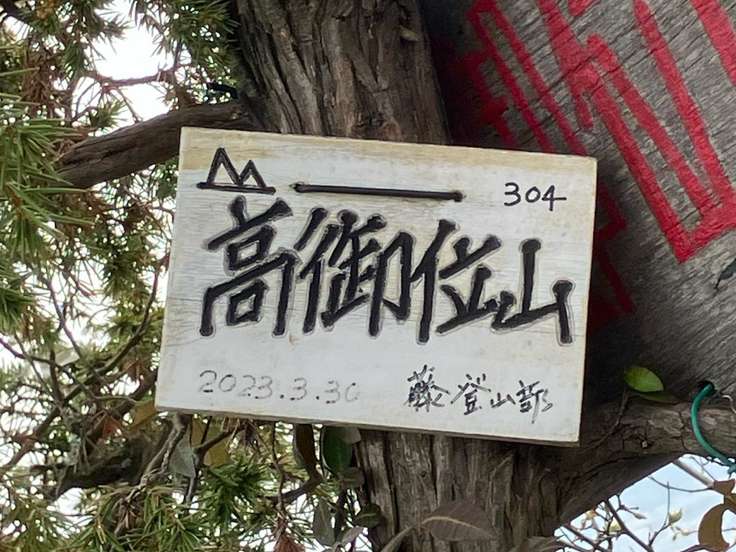 304
高御位山
2023.3.30
藤登山部